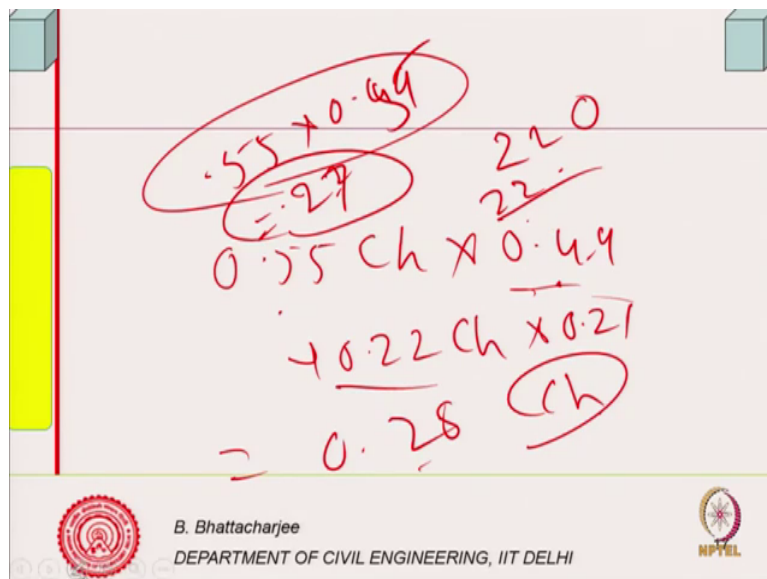 .55 × 0.49
= .27
220
22.
0.55 Ch × 0.49
+ 0.22 Ch × 0.21
= 0.28 Ch
B. Bhattacharjee
DEPARTMENT OF CIVIL ENGINEERING, IIT DELHI
NPTEL